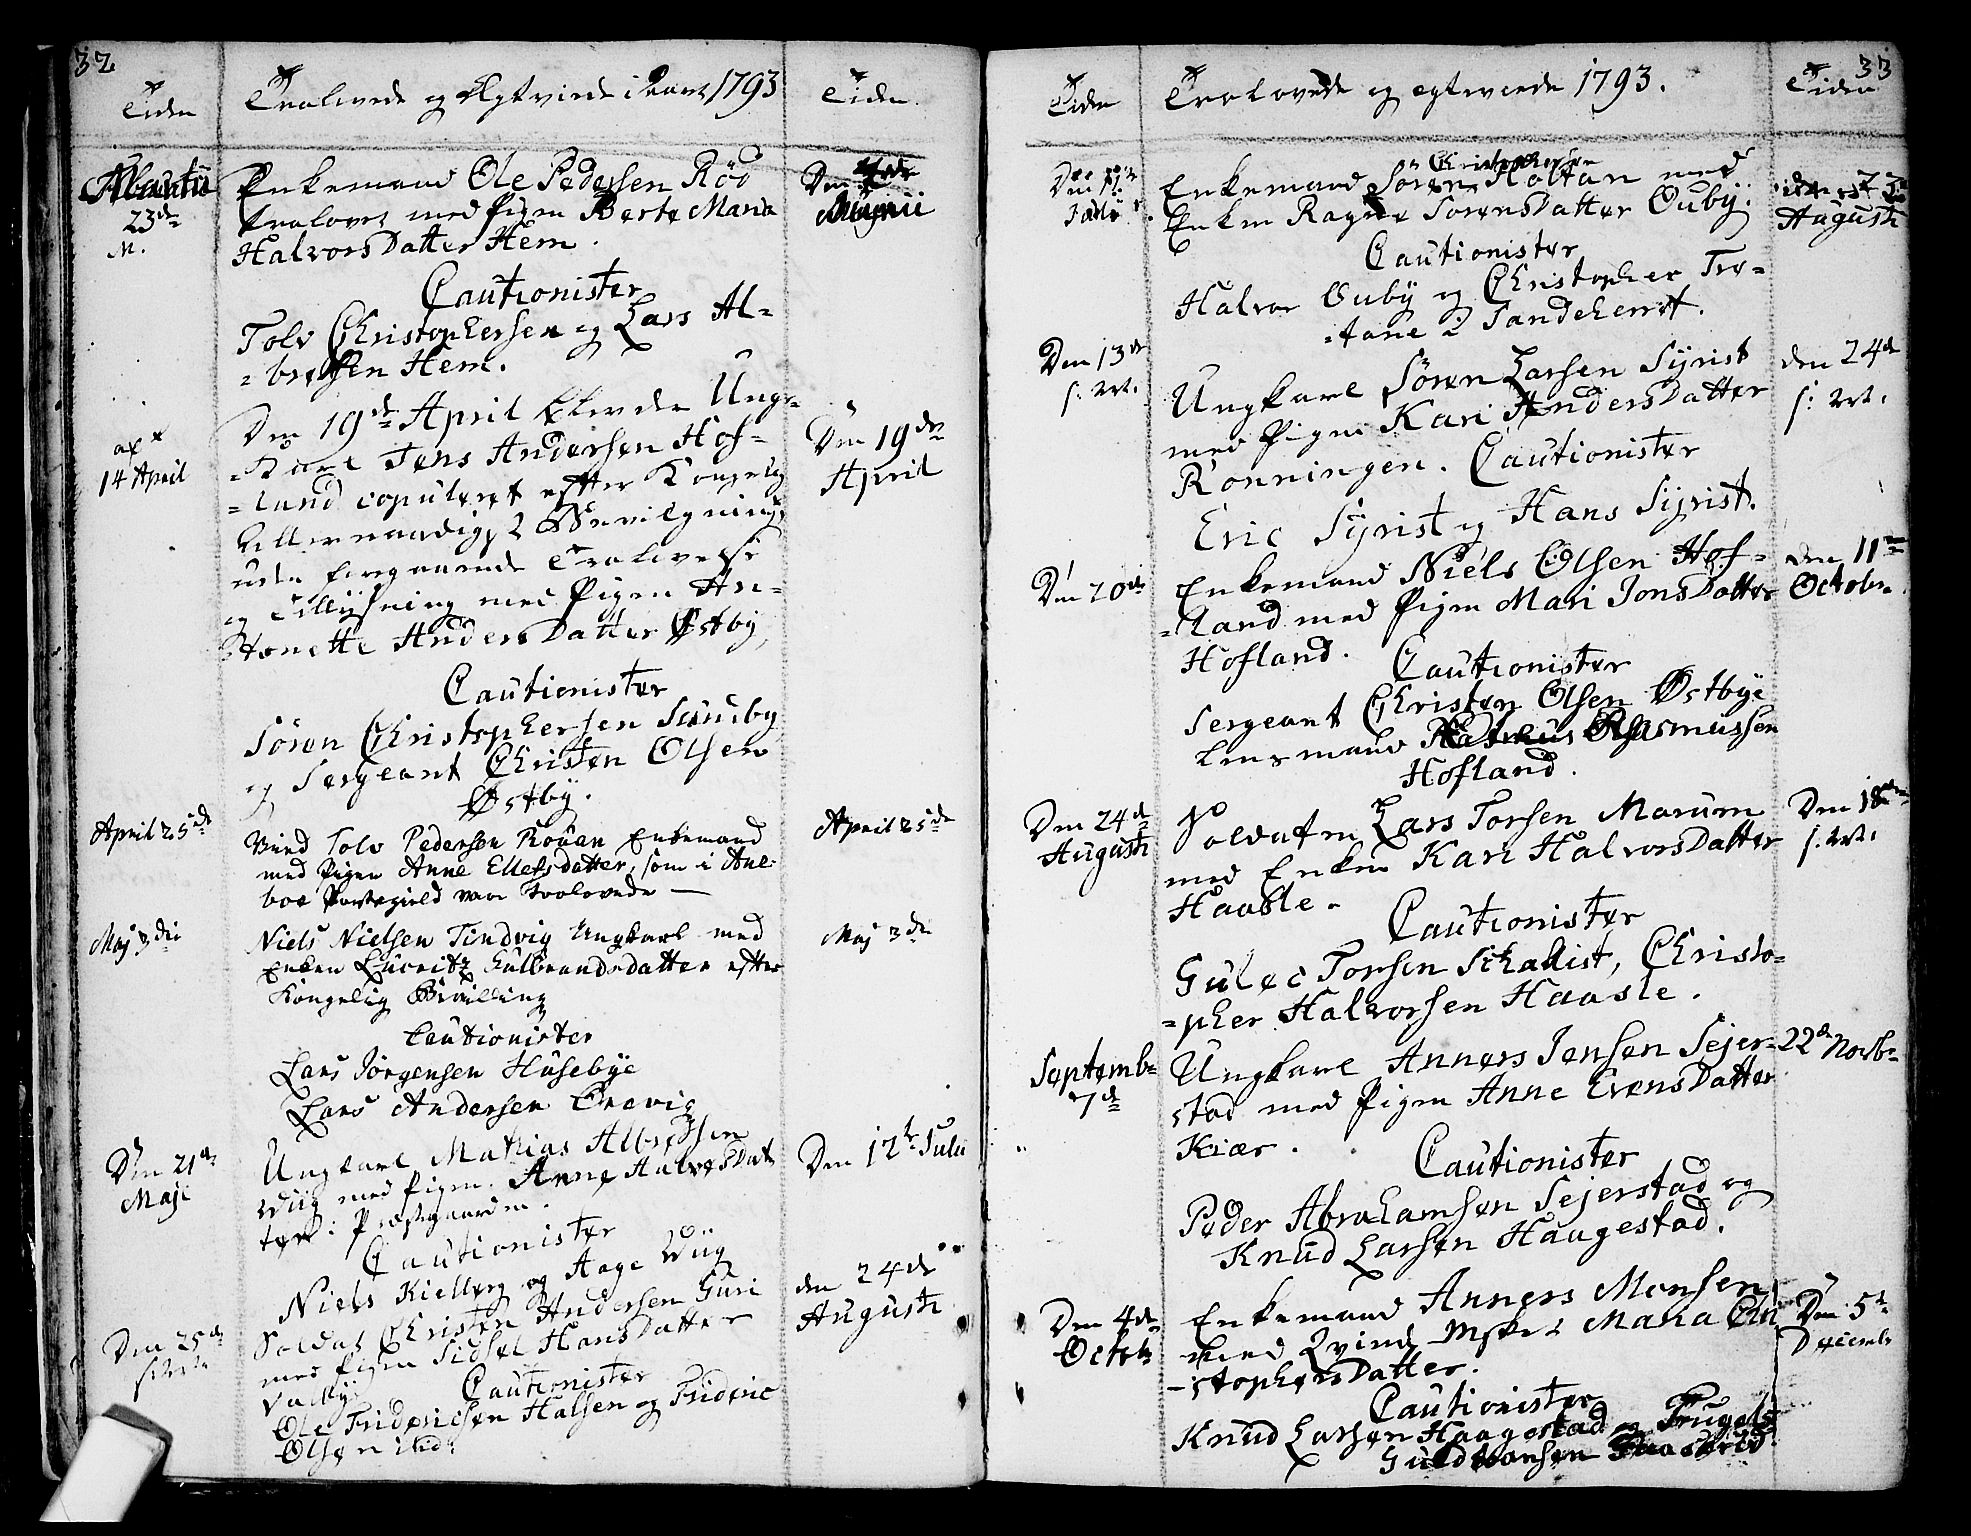 32
Tiden
Trolovede og Egtviede i Aaret 1793
Tiden
Martii
23de
M.
Enkemand Ole Pedersen Röd
trolovet med Pigen Berte Maria
HalvorsDatter Hem.
Cautionister
Tolv Christophersen og Lars Al-
-bretsen Hem.
Den 4de
14 April
Den 19de April blev da Ung-
-Karl Jens Andersen Hof-
-land copuleret efter Kongelig
Allernaadigst Bevilgning
uden foregaaende Trolovelse
og Tillysning med Pigen An-
-tonette AndersDatter Østby,
Cautionister
Sören Christophersen Sundby
og Sergeant Christen Olsen
Østby.
Den 19de
April
April 25de
Viied Tolv Pedersen Rouen Enkemand
med Pigen Anne Ellefsdatter, som i Ane-
boe Præstegield vare trolovede —
April 25de
Maj 3die
Niels Nielsen Tindvig Ungkarl med
Enken Lucritz Gulbrandsdatter efter
Kongelig Bevilling
Cautionister
Lars Jörgensen Husebye
Lars Andersen Grevig
Maj 3die
Den 21de
Maji
Ungkarl Mathias Albretsen
Wiig med Pigen Anne HalvorsDat-
ter i Præstegaarden.
Cautionister
Niels Kielberg og Aage Wiig
Den 12te Julii
Den 25de
Soldat Christen Andersen Guri
med Pigen Sidsel HansDatter
Valby.
Cautionister
Ole Fridericsen Halsen og Frideric
Olsen
den 24de
Augusti
33
Tiden
Trolovede og egteviede 1793.
Tiden
Julii
Enkemand Sören Christophersen Holtan med
Enken Ragne SörensDatter Ouby.
Cautionister
Halvor Ouby og Christopher Tro-
-tane i Sandeherret.
den 23de
Augusti
Den 13de
Ungkarl Sören Larsen Syrist
med Pigen Kari AndersDatter
Rönningen. Cautionister
Eric Syrist og Hans Syrist.
den 24de
Den 20de
Enkemand Niels Olsen Hof-
-land med Pigen Mari JonsDatter
Hofland. Cautionister
Sergeant Christen Olsen Østbye
Lensmand Rasmussen
Hofland.
den 11te
Octobr.
Den 24de
Augusti
Soldaten Lars Torsen Marum
med Enken Kari HalvorsDatter
Haasle. Cautionister
Gulec Torsen Schalist, Christo-
-pher Halvorsen Haasle.
Den 18de
Septembr
7de
Ungkarl Anners Jensen Sejer-
stad med Pigen Anne EvensDatter
Kiær.
Cautionister
Peder Abrahamsen Sejerstad og
Knud Larsen Haugestad.
22de Novbr
Den 4de
Octobr
Enkemand Anners Monsen
med Qvindemsket Maria Chri
-stophersDatter.
Cautionister
Knud Larsen Haagestad og Trugels
Guldbransen
Den 5te
Decembr